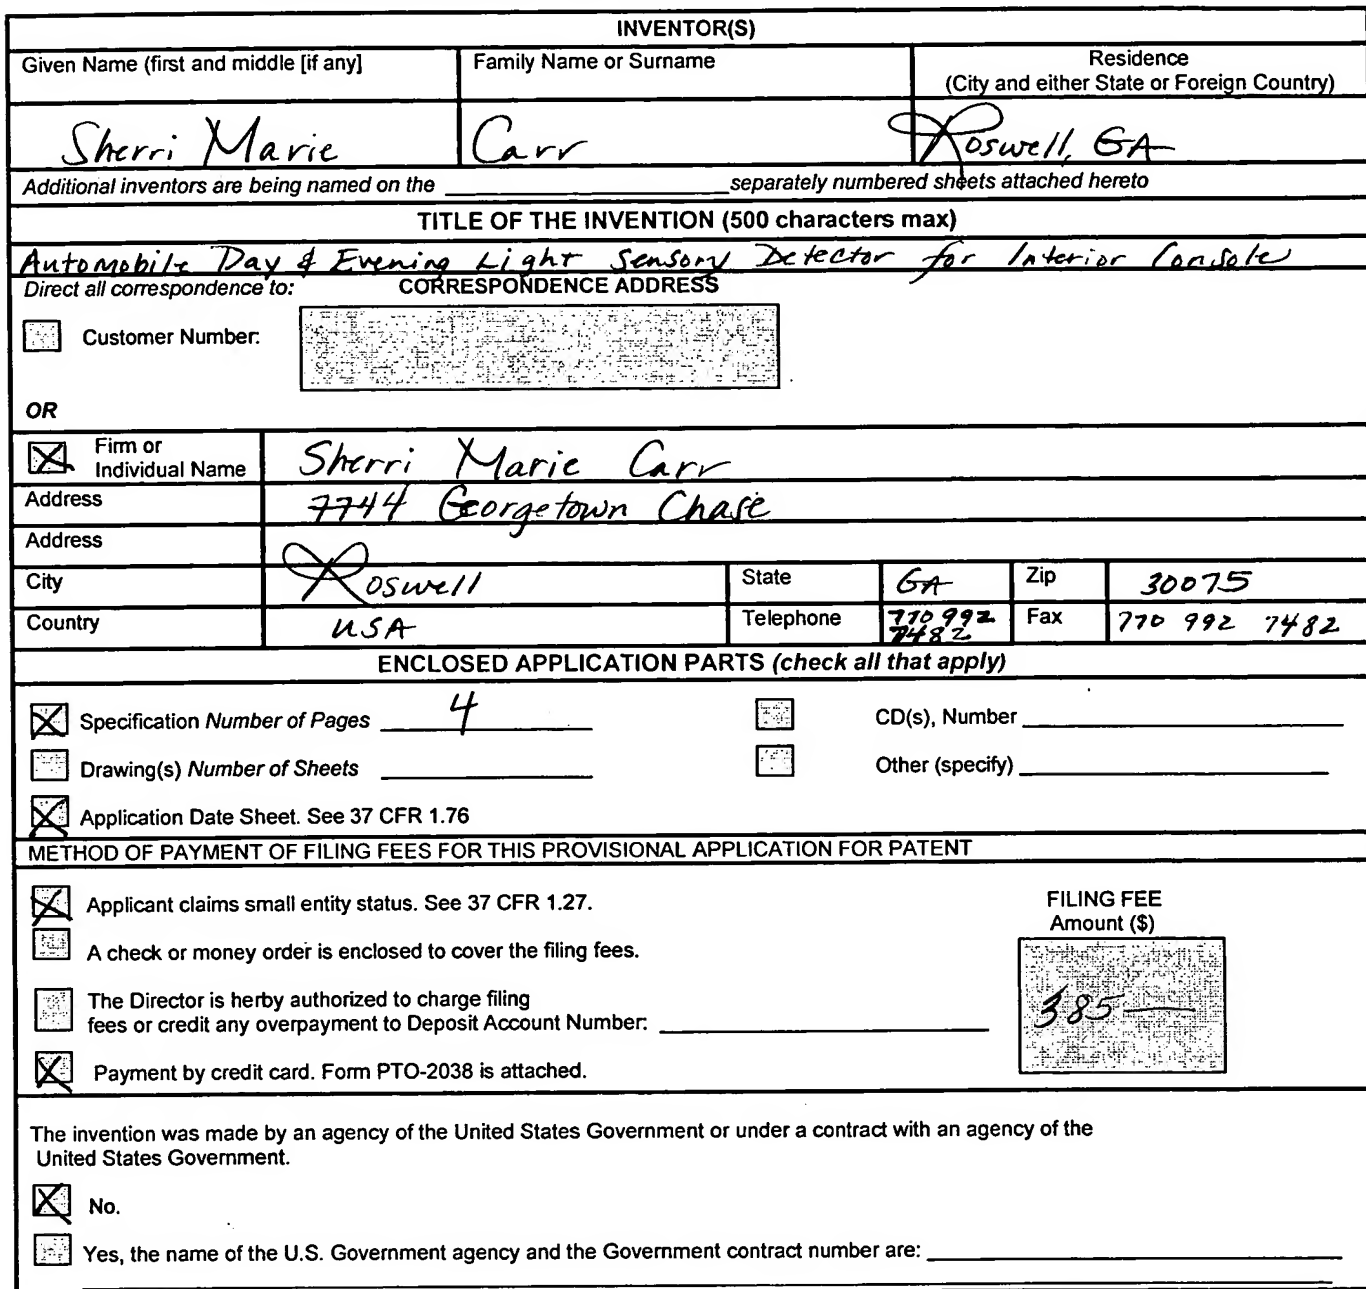 INVENTOR(S)
Given Name (first and middle [if any]
Family Name or Surname
Residence
(City and either State or Foreign Country)
Sherri Marie
Carr
Roswell, GA
Additional inventors are being named on the ____________ separately numbered sheets attached hereto
TITLE OF THE INVENTION (500 characters max)
Automobile Day & Evening Light Sensory Detector for Interior Console
Direct all correspondence to: CORRESPONDENCE ADDRESS
Customer Number:
OR
Firm or
Individual Name
Sherri Marie Carr
Address
7744 Georgetown Chase
Address
City
Roswell
State
GA
Zip
30075
Country
USA
Telephone
770 992
7482
Fax
770 992 7482
ENCLOSED APPLICATION PARTS (check all that apply)
Specification Number of Pages 4
CD(s), Number
Drawing(s) Number of Sheets
Other (specify)
Application Date Sheet. See 37 CFR 1.76
METHOD OF PAYMENT OF FILING FEES FOR THIS PROVISIONAL APPLICATION FOR PATENT
Applicant claims small entity status. See 37 CFR 1.27.
FILING FEE
Amount ($)
A check or money order is enclosed to cover the filing fees.
The Director is herby authorized to charge filing
fees or credit any overpayment to Deposit Account Number:
385—
Payment by credit card. Form PTO-2038 is attached.
The invention was made by an agency of the United States Government or under a contract with an agency of the
United States Government.
No.
Yes, the name of the U.S. Government agency and the Government contract number are: